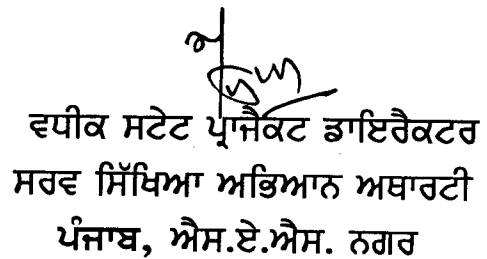 ਵਧੀਕ ਸਟੇਟ ਪ੍ਰਾਜੈਕਟ ਡਾਇਰੈਕਟਰ
ਸਰਵ ਸਿੱਖਿਆ ਅਭਿਆਨ ਅਥਾਰਟੀ
ਪੰਜਾਬ, ਐਸ.ਏ.ਐਸ. ਨਗਰ